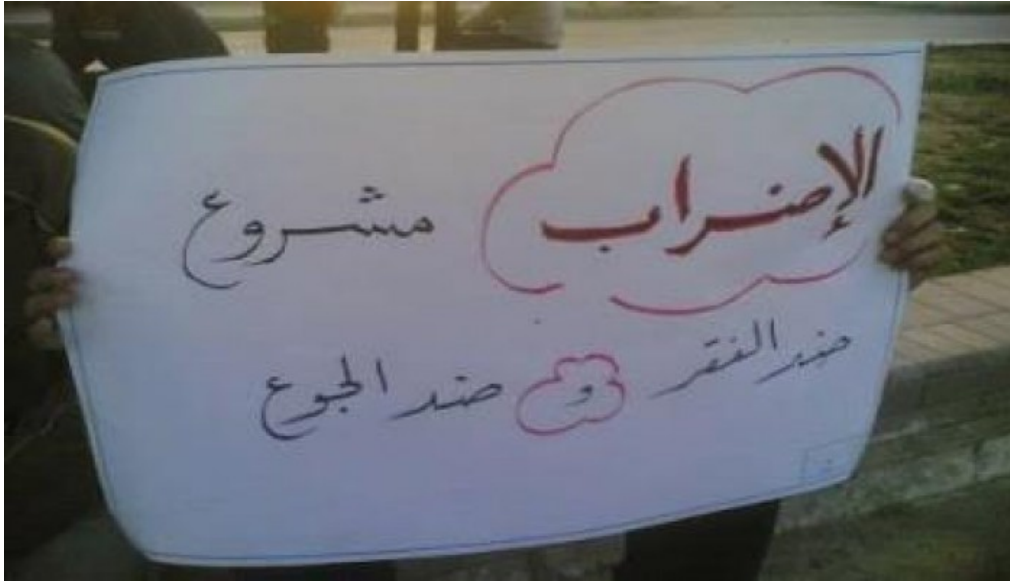 الإضراب مشروع
ضد الفقر و ضد الجوع